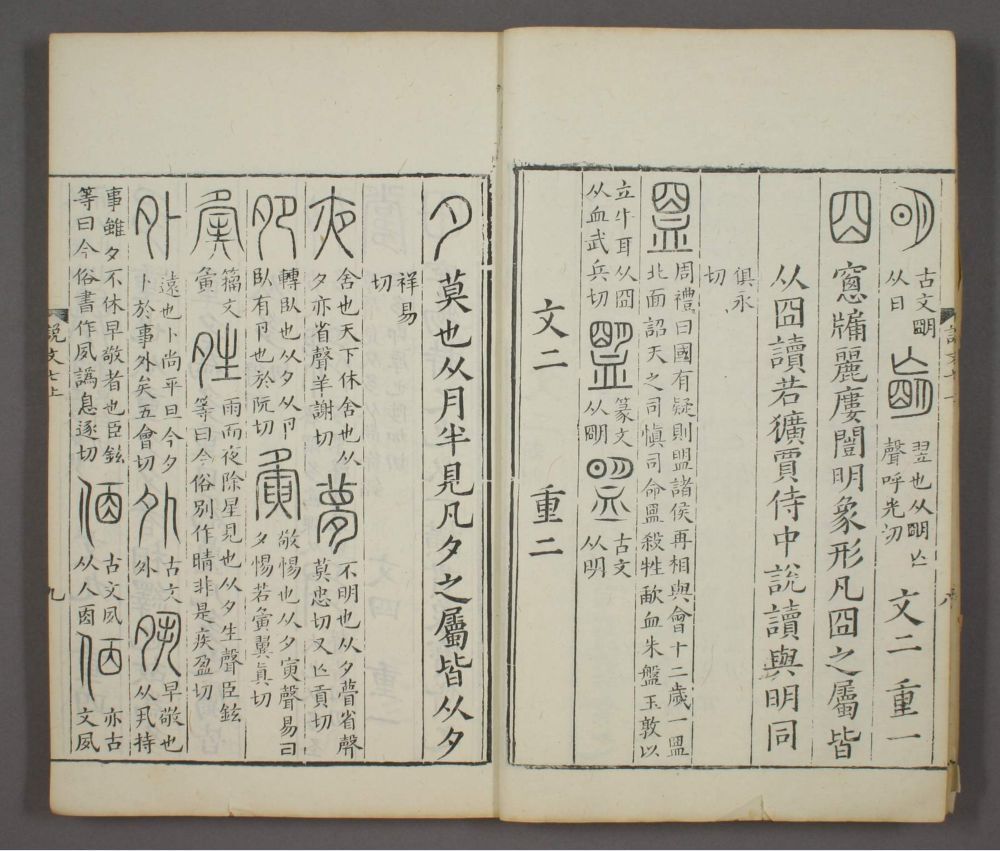 明 古文朙从日 朚 翌也从朙亡聲呼光切 文二 重一
囧 窻牖麗廔闓明象形凡囧之屬皆
从囧讀若獷賈侍中說讀與明同
俱永切
𥁰 周禮曰國有疑則𥁰諸侯再相與會十二歲一𥁰北面詔天之司愼司命𥁰殺牲歃血朱盤玉敦以
立牛耳从囧从血武兵切 𥂗 篆文从朙 盟 古文从明
文二 重二
夕 莫也从月半見凡夕之屬皆从夕
祥易切
夜 舍也天下休舍也从夕亦省聲羊謝切 夢 不明也从夕瞢省聲莫忠切又亡貢切
夗 轉臥也从夕从卪臥有卪也於阮切 夤 敬惕也从夕寅聲易曰夕惕若夤翼眞切
籒文夤 夝 雨而夜除星見也从夕生聲臣鉉等曰今俗別作晴非是疾盈切
外 遠也卜尚平旦今夕卜於事外矣五會切 外 古文外 夙 早敬也从丮持
事雖夕不休早敬者也臣鉉等曰今俗書作夙譌息逐切 㐽 古文夙从人㐁 㑉 亦古文夙
說文七上
九